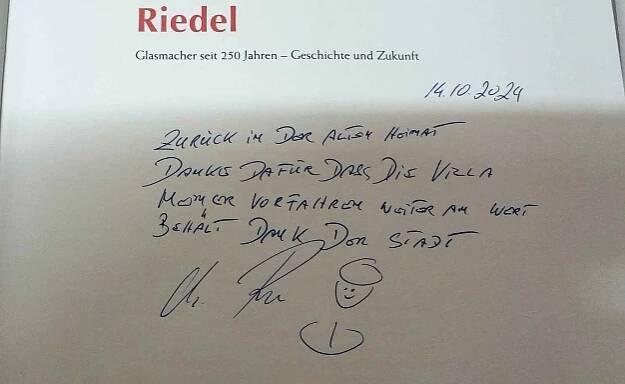 Riedel
Glasmacher seit 250 Jahren – Geschichte und Zukunft
14.10.2024
ZURÜCK IN DER ALTEN HEIMAT
DANKE DAFÜR DASS DIE VILLA
MEINER VORFAHREN WEITER AN WERT
BEHÄLT DANK DER STADT